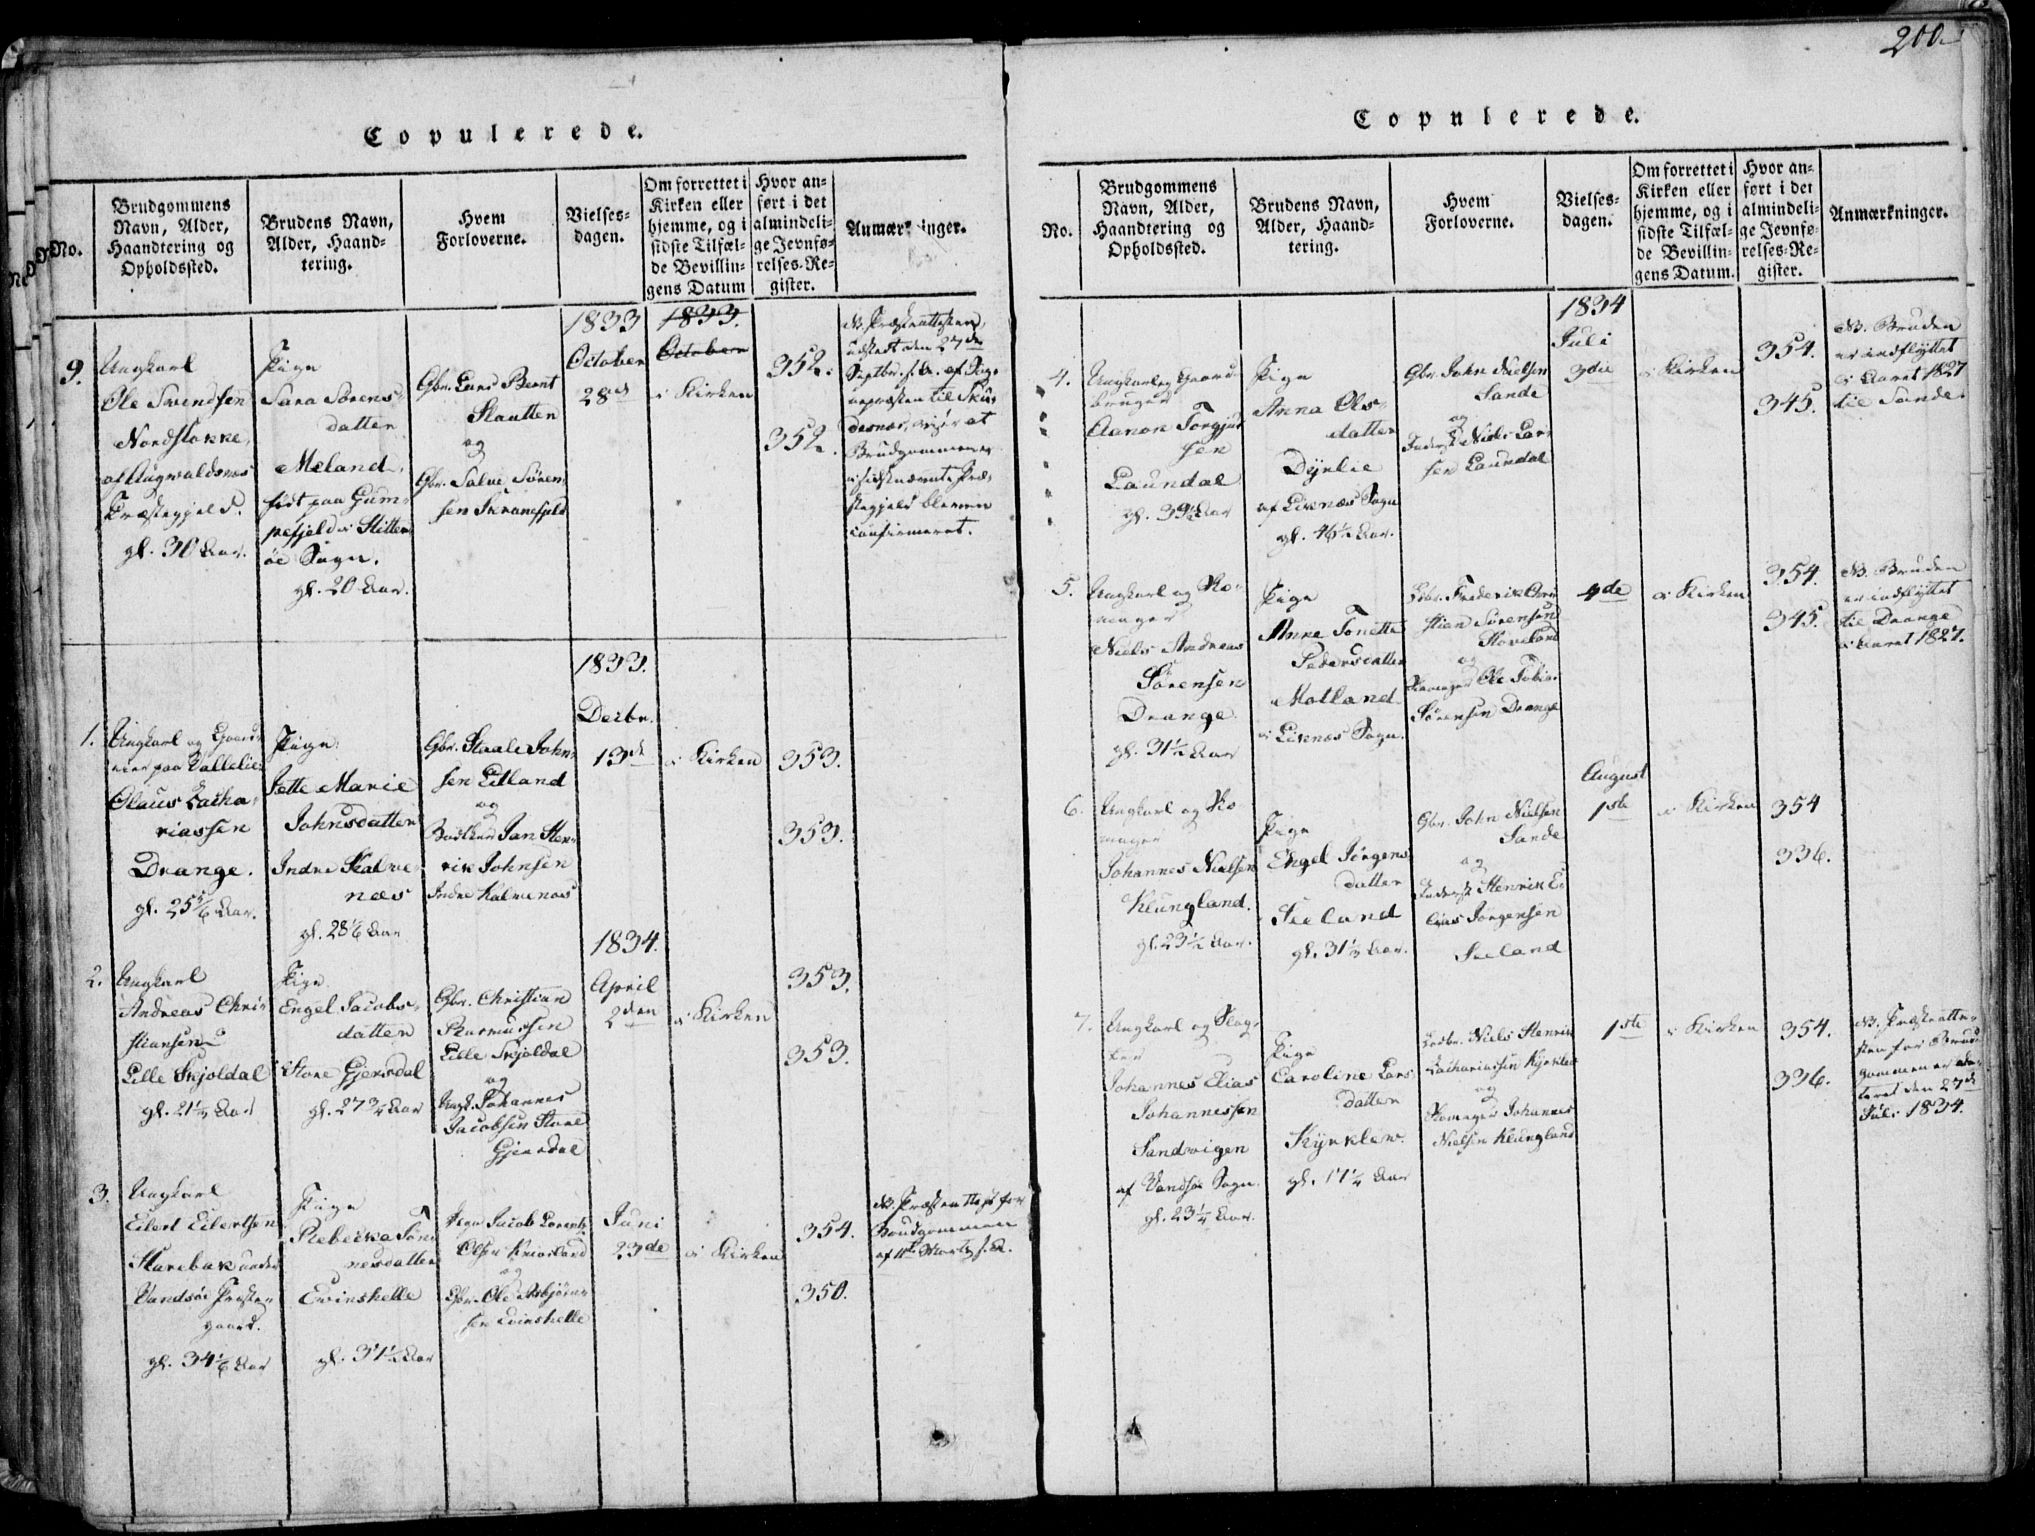 200.
Copulerede.
No.
Brudgommens
Navn, Alder,
Haandtering og
Opholdssted.
Brudens Navn,
Alder, Haand-
tering.
Hvem
Forloverne.
Vielses-
dagen.
Om forrettet i
Kirken eller
hjemme, og i
sidste Tilfæl-
de Bevillin-
gens Datum
Hvor an-
ført i det
almindeli-
ge Jevnfø-
relses-Re-
gister.
Anmærkninger.
9.
Ungkarl
Ole Svendsen
Nordstokke,
af Augvaldsnes
Præstegjeld.
gl. 30 Aar.
Pige
Sara Sørens-
datter
Meland,
født paa Gum-
pefjeld i Hitter-
øe Sogn.
gl. 20 Aar.
Gbr. Lars Bernt
Slautten
og
Gbr. Salve Søren-
sen Skranefjeld
1833
October
28de
1833.
October
i Kirken
352.
352.
NB. Præsteattesten,
udstedt den 27de
Septbr. f. A. af Sog-
nepræsten til Sku-
desnes, viser at
Brudgommen er
i sidstnævnte Præ-
stegjeld bleven
confirmeret.
1833.
Decbr.
1.
Ungkarl og Gaard-
eier paa Vallelie
Olaus Zacha-
riassen
Drange.
gl. 25 5/6 Aar.
Pige
Jette Marie
Johnsdatter
Indre Kalve-
næs
gl. 28 1/6 Aar
Gbr. Staale John-
sen Litland
og
Jan Hen-
rik Johnsen
Indre Kalvenæs
13de
i Kirken
353.
353.
1834.
2.
Ungkarl
Andreas Chri-
stiansen
Lille Skjoldal
gl. 21 1/4 Aar
Pige
Engel Jacobs-
datter
Store Gjersdal
gl. 27 3/4 Aar
Gbr. Christian
Rasmussen
Lille Skjoldal
og
Ungk. Johannes
Jacobsen Store
Gjersdal
April
2den
i Kirken
353.
353.
3.
Ungkarl
Eilert Eilertsen
Harebak under
Vandsøe Præste-
gaard.
gl. 34 1/6 Aar
Pige
Rebecka Tøn-
nesdatter
Evinshelle
gl. 31 1/2 Aar
Jacob Lorentz
Olsen
og
Gbr. Ole Asbjørn-
sen Evinshelle
Juni
23de
i Kirken
354.
350.
NB. Præsteattest for
Brudgommen
af 11te Marts f. A.
Copulerede.
No.
Brudgommens
Navn, Alder,
Haandtering og
Opholdssted.
Brudens Navn,
Alder, Haand-
tering.
Hvem
Forloverne.
Vielses-
dagen.
Om forrettet i
Kirken eller
hjemme, og i
sidste Tilfæl-
de Bevillin-
gens Datum.
Hvor an-
ført i det
almindeli-
ge Jevnfø-
relses-Re-
gister.
Anmærkninger.
4.
Ungkarl og Gaard-
bruger
Aanon Torgjus-
sen
Laundal
gl. 39 1/2 Aar
Pige
Anna Ols-
datter
Dyrlie
af Liknæs Sogn
gl. 46 1/2 Aar.
Gbr. John Nielsen
Sande
og
Inderst Niels Lar-
sen Laundal
1834
Juli
3die
i Kirken
354.
345.
NB. Bruden
er indflyttet
i Aaret 1827
til Sande.
5.
Ungkarl og Sko-
mager
Niels Andreas
Sørensen
Drange.
gl. 31 1/2 Aar
Pige
Anne Tonette
Pedersdatter
Molland
i Liknæs Sogn.
Gbr. Frederik Chri-
stian Sørensen
og
Skomager Ole Tobias
Sørensen Drange
4de
i Kirken
354.
345.
NB. Bruden
er indflyttet
til Drange
i Aaret 1827.
6.
Ungkarl og Sko-
mager
Johannes Nielsen
Klungland.
gl. 23 1/2 Aar.
Pige
Engel Jørgens-
datter
Seeland
gl. 31 1/3 Aar.
Gbr. John Nielsen
Sande
og
Inderst Henrik E-
lias Jørgensen
Seeland
August
1ste
i Kirken
354
336.
7.
Ungkarl og Slag-
ter
Johannes Elias
Johannessen
Sandvigen
af Vandsøe Sogn.
gl. 23 1/4 Aar.
Pige
Caroline Lars-
datter
Kyrklev.
gl. 17 1/4 Aar
Niels Henrik
Zachariassen Kyrklev
og
Skomager Johannes
Nielsen Klungland
1ste
i Kirken
354.
336.
NB. Præsteatte-
sten for Brud-
gommen er da-
teret den 27de
Juli 1834.